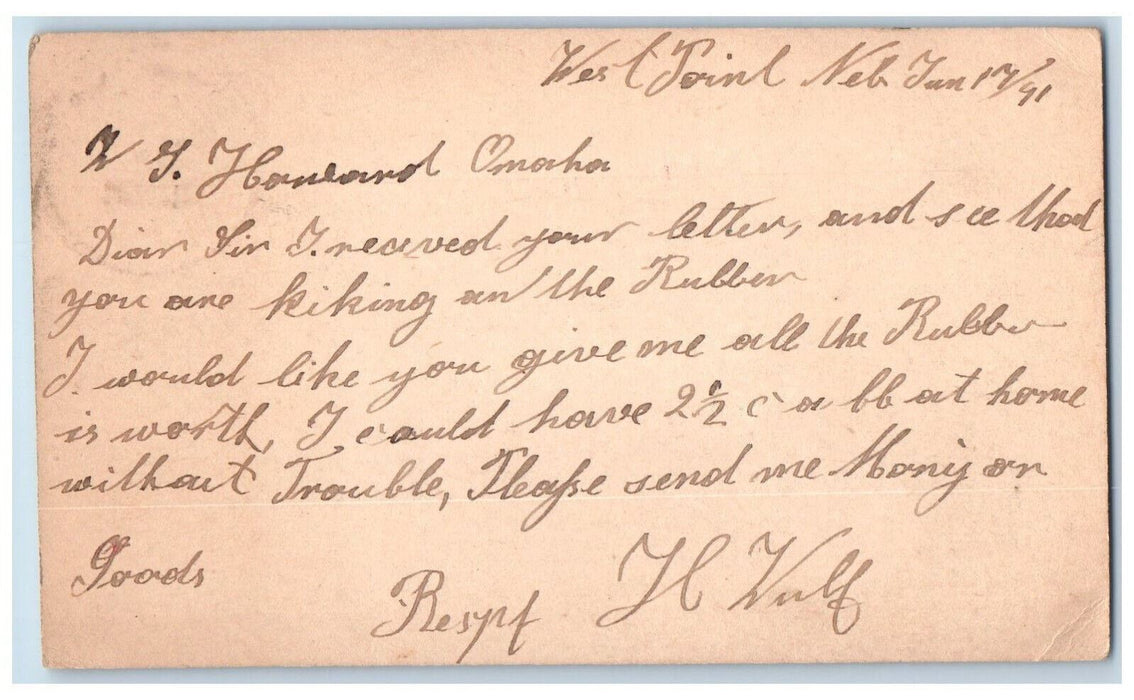 West Point Neb Jun 17/91
W G. Haward Omaha
Diar Sir I. recived your letter, and see thad
you are kiking an the Rubber
I would like you give me all the Rubber
is worth, I could have 2½ c a lb at home
without Trouble, Please send me Mony or
Goods
Respt H Wulf